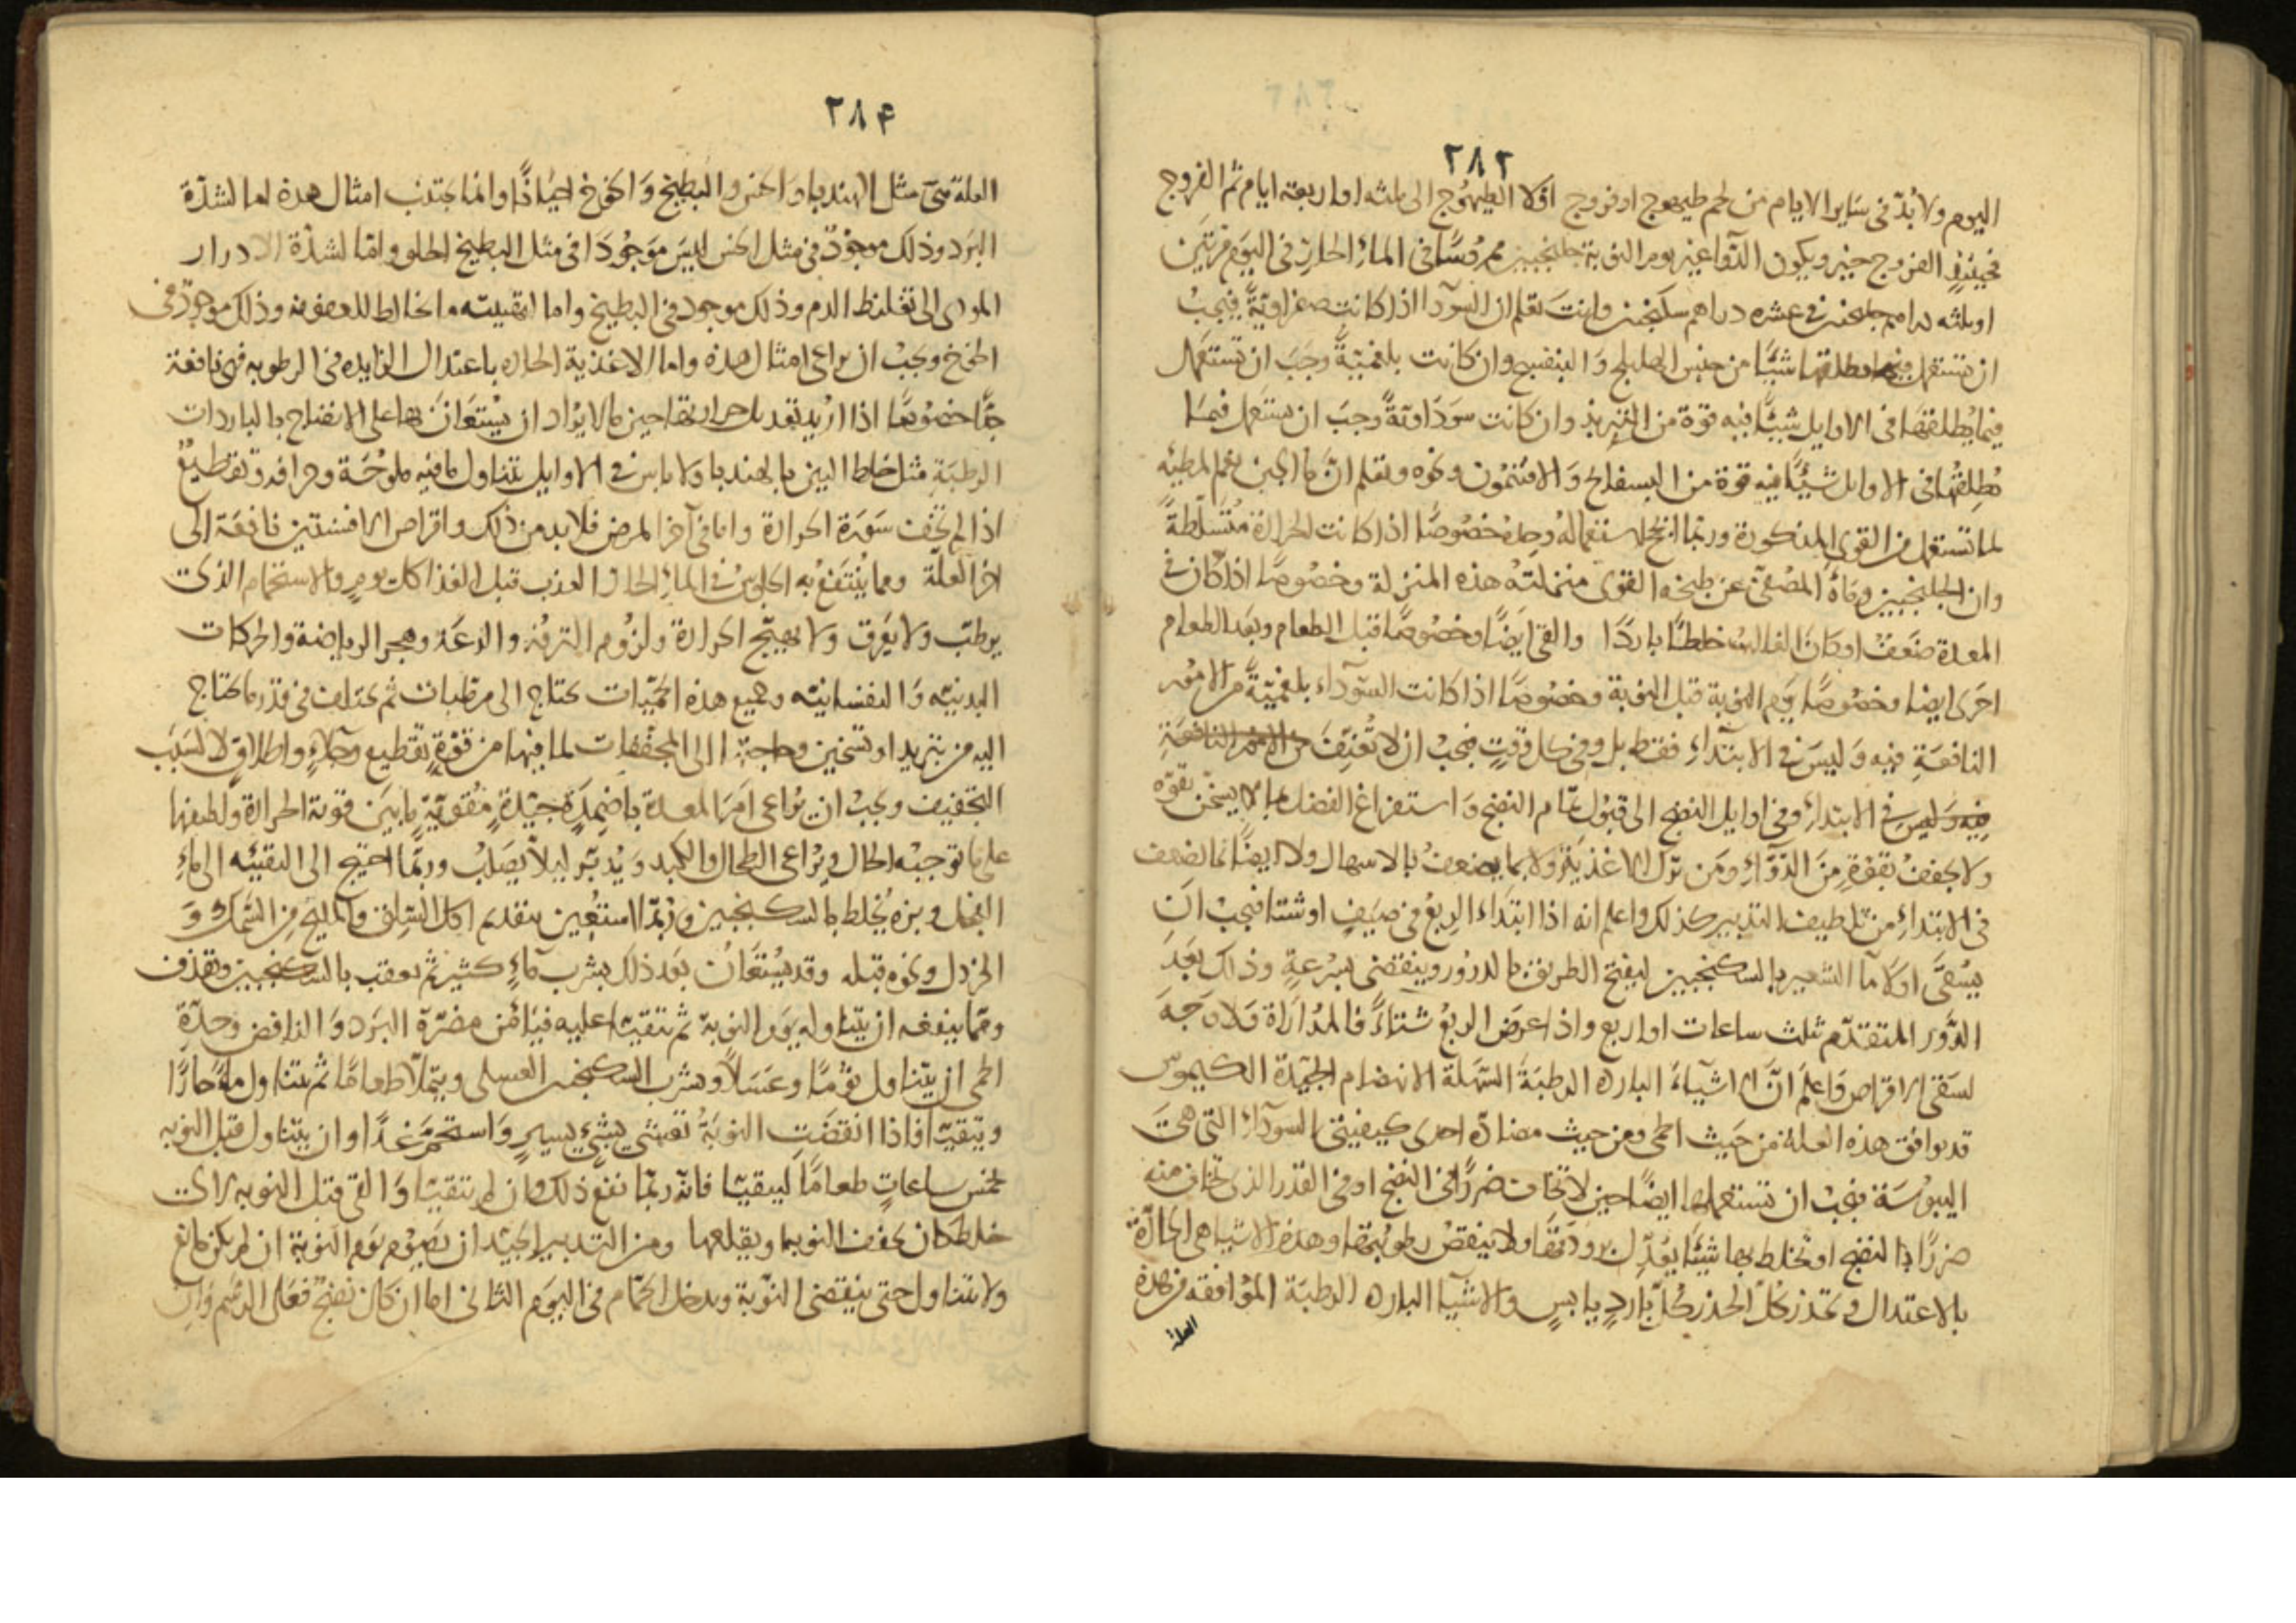 ٢٨٢
اليوم ولا بُدّ فى سَاير الايام من لحم طيهوج او فروج اوّلا الطيهوج الى ثلثه او اربعه ايام ثم الفروج
فحينئذٍ الفروج خير ويكون الدّوا غير يوم النوبة جلنجبين ممروسًا فى الماءِ الحارّ فى اليوم مرّتين
او ثلثه دراهم جلنجبين فى عشره دراهم سكنجبين وانتَ تعلم ان السودآ اذا كانت صفراويّةً فيجبُ
ان تستعمل فيما يطلقها شيًّا من جنس الهليلج وَالبنفسج وان كانت بلغميّةً وجَبَ ان تستعمل
فيما يُطلقهَا فى الاوايل شيئًا فيه قوة من التربذ وان كانت سَوداويةً وجبَ ان يستعمل فيمَا
يُطلِقهُا فى الاوايل شيئًا فيه قوة من البسفايج وَالافتيمُون ونحوه وتعلم انّ ما الجبن نعم المطيّه
لما تستعمل من القوى المذكورة وربّما انجح استعمالهُ وحدهُ خصُوصًا اذا كانت الحرارة مُتَسلّطةً
وان الجلنجبين وماءه المصفّى عن طبخه القوى منزلتهُ هذه المنزلة وخصُوصًا اذا كان فى
المعدة ضَعفٌ او كانَ الغالبُ خلطًا باردًا والقى ايضًا وخصُوصًا قبل الطعام وبعد الطعام
اخرى ايضا وخصُوصًا يوم النوبة قبل النوبة وخصُوصًا اذا كانت السّودآء بلغميّةً من الامُور
النافعَةِ فيه وَليسَ فى الابتدآءِ فقط بل وفى كل وقتٍ فيجبُ ان لا تُعنّفَ من الامور النافعَةِ
فيه وليسَ فى الابتداءِ وفى اوايل النضج الى قبُول تمام النضج وَاستفراغ الفضل بما لا يسخن بقوّه
ولا يجففُ بقوّةٍ مِنَ الدّوَاءِ ومَن ترك الاغذيَة ولا بما يضعفُ بالاسهال ولا ايضًا بما يضعف
فى الابتداءِ من تلطيف التدبير كذلك واعلم انه اذا ابتَداءَ الرِبعُ فى صَيفٍ او شتا فيجبُ انَ
يُسقىَ اوّلا مآ الشعير بالسكنجبين ليفتح الطريق بالدرُور وينقضى بسُرعةٍ وذلك بَعدَ
الدَّور المتقدّم ثلث ساعات او اربع واذا عرضَ الربعُ شتآءً فالمُدارَاة فلا وَجهَ
لسَقى الاقراص وَاعلَم انّ الاشيآءَ البارده الرطبَةَ السّهَلة الانهضام الجَيّدة الكيموس
قد يوافق هذه العلة من حَيث الحمى ومن حيث مضادّه احدى كيفيّتى السودآءِ التى هىَ
اليبُوسَة فيجبُ ان تستعملها ايضًا حين لا تخاف ضررًا فى النضج او فى القدر الذى تخاف منه
ضررًا بالنضج او تخلط بها شيئًا يُعَدّل بُرودتهَا ولا ينقصُ رطوبُتها وهذه الاشيا هى الحارّة
بالاعتدال وتحذر كلّ الحذر كُلّ بَاردٍ يابسٍ والاشيآ البارده الرطبَة المُوافقه من هذه
العلة
٢٨۴
العلة شئ مثل الهندبا وَالخس والبطيخ وَالخوخ احيانًا وانما يجتنب امثال هذه اما لشدّة
البرَد وذلك موجودٌ فى مثل الخس ليسَ موَجُودًا فى مثل البطيخ الحلو وامّا لشدّة الادرار
المودى الى تغليظ الدم وذلك موجود فى البطيخ واما لتهيئته ما يخالط للعفونه وذلك موجودٌ فى
الخوخ ويجبُ ان يراعى امثال هذه واما الاغذية الحاره باعتدال الزايده فى الرطوبه فهى نافعة
جدًّا خصُوصًا اذا ارُيد تعديل حرارتها حين ما لا يُراد ان يُستعَانَ بها على الانضاج بالباردات
الرطبَةِ مثل خلط التين بالهندبا ولا باس فى الاوايل بتناول ما فيه ملوحَة وحرافه وتقطيعٌ
اذا لم تخفْ سَورَة الحرارة واما فى آخر المرض فلا بد من ذلك واقراص الافسنتين نافعَة الى
اخر العلّة ومما يُنتفعُ به الجلوس فى الماءِ الحار العذب قبل الغذا كل يومٍ والاستحمام الذى
يرطّب ولا يَعرق ولا يهيّج الحرارة ولزُوم الترفُه والدعَة وهجر الرياضة والحركات
البدنيّه وَالنفسانيّه وجميع هذه الحُمّيَات تحتاج الى مرطّبات ثم تختلف فى قدر ما تحتاج
اليه من تبريد او تسخين وحاجة الى المجففات لما فيها من قوّةٍ تقطيع وجلآءٍ واطلاقٍ لا لسَبَب
التجفيف ويجبُ ان يُراعى امرَ المعدة باضمِدَةٍ جيّدةٍ مُقوّيةٍ ما بيَن قوية الحرارة ولطيفها
على ما توجبُه الحال ويُراعى الطحال والكبد وَيُدبّر ليلاّ يَصلبُ وربّما احتيج الى التقيئه الى ماءِ
الفجل وبزره يُخلط بالسكنجبين وربّما استُعين بتقديم اكل السّلق والمليح مِن السّمك وَ
الخردل ونحوه قبله وقد يستَعَانُ بَعد ذلك بشرب مآءٍ كثير ثم يعقب بالسكنجبين وتقذف
وممّا ينفعه ان يتناوله يوَم النوبة ثم يتقيّا عليه فيَامُن مضرّة البَرد وَالنافض وحدّةِ
الحمى ان يتناول ثومًا وعَسَلاً ويشرب السكنجبين العسلى ويتملّا طعامًا ثم يتناول ماءً حارًّا
ويتقيّا فاذا انقضَت النوبَةُ تعشّى بشئٍ يسيرٍ وَاستحمَ مِنَ غدًا وان يتناول قبل النوبه
بخمس ساعاتٍ طعامًا ليتقيّا فانّه ربّما نفعَ ذلك وان لم يتقيّا وَالقى قبل النوبه لاى
خلط كان يخفف النوبة ويقلعها ومن التدبير الجيّد ان يَصُوم يوَم النوبة ان لم يكن مانع
ولا يتناول حتى ينقضى النوّبة ويدخل الحمّام فى اليوَم الثانى اما ان كان نضجٌ فعَلى الرسم وَان